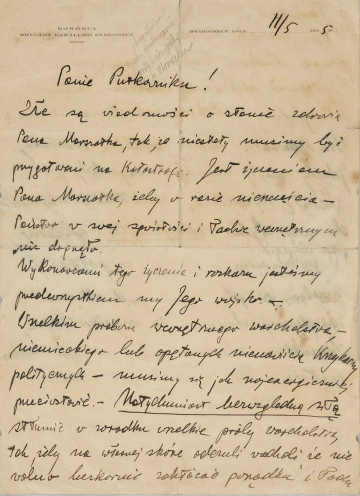 DOWÓDCA
BRYGADY KAWALERJI BYDGOSZCZ
BYDGOSZCZ, DNIA 11/5 193 5
Panie Pułkowniku!
Złe są wiadomości o stanie zdrowia
Pana Marszałka, tak że niestety musimy być
przygotowani na katastrofę. Jest życzeniem
Pana Marszałka, żeby w razie nieszczęścia –
Państwo w swej spoistości i ładzie wewnętrznym
nie drgnęło.
Wykonawcami tego życzenia i rozkazu jesteśmy
przedewszystkiem my Jego wojsko. –
Wszelkim próbom wewnętrznego warcholstwa –
niemieckiego lub opętanych nienawiścią
politycznych – musimy się jak najenergiczniej
przeciwstawić. – Natychmiast bezwzględną siłą
stłumić w zarodku wszelkie próby warcholstwa,
tak żeby na własnej skórze odczuli wszyscy że nie
wolno bezkarnie zakłócać porządku i ładu